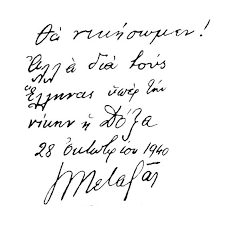 Θά νικήσωμεν!
Ἀλλὰ διὰ τοὺς
Ἕλληνας ὑπὲρ τὴν
νίκην ἡ Δόξα
28 Ὀκτωβρίου 1940
Ι Μεταξᾶς